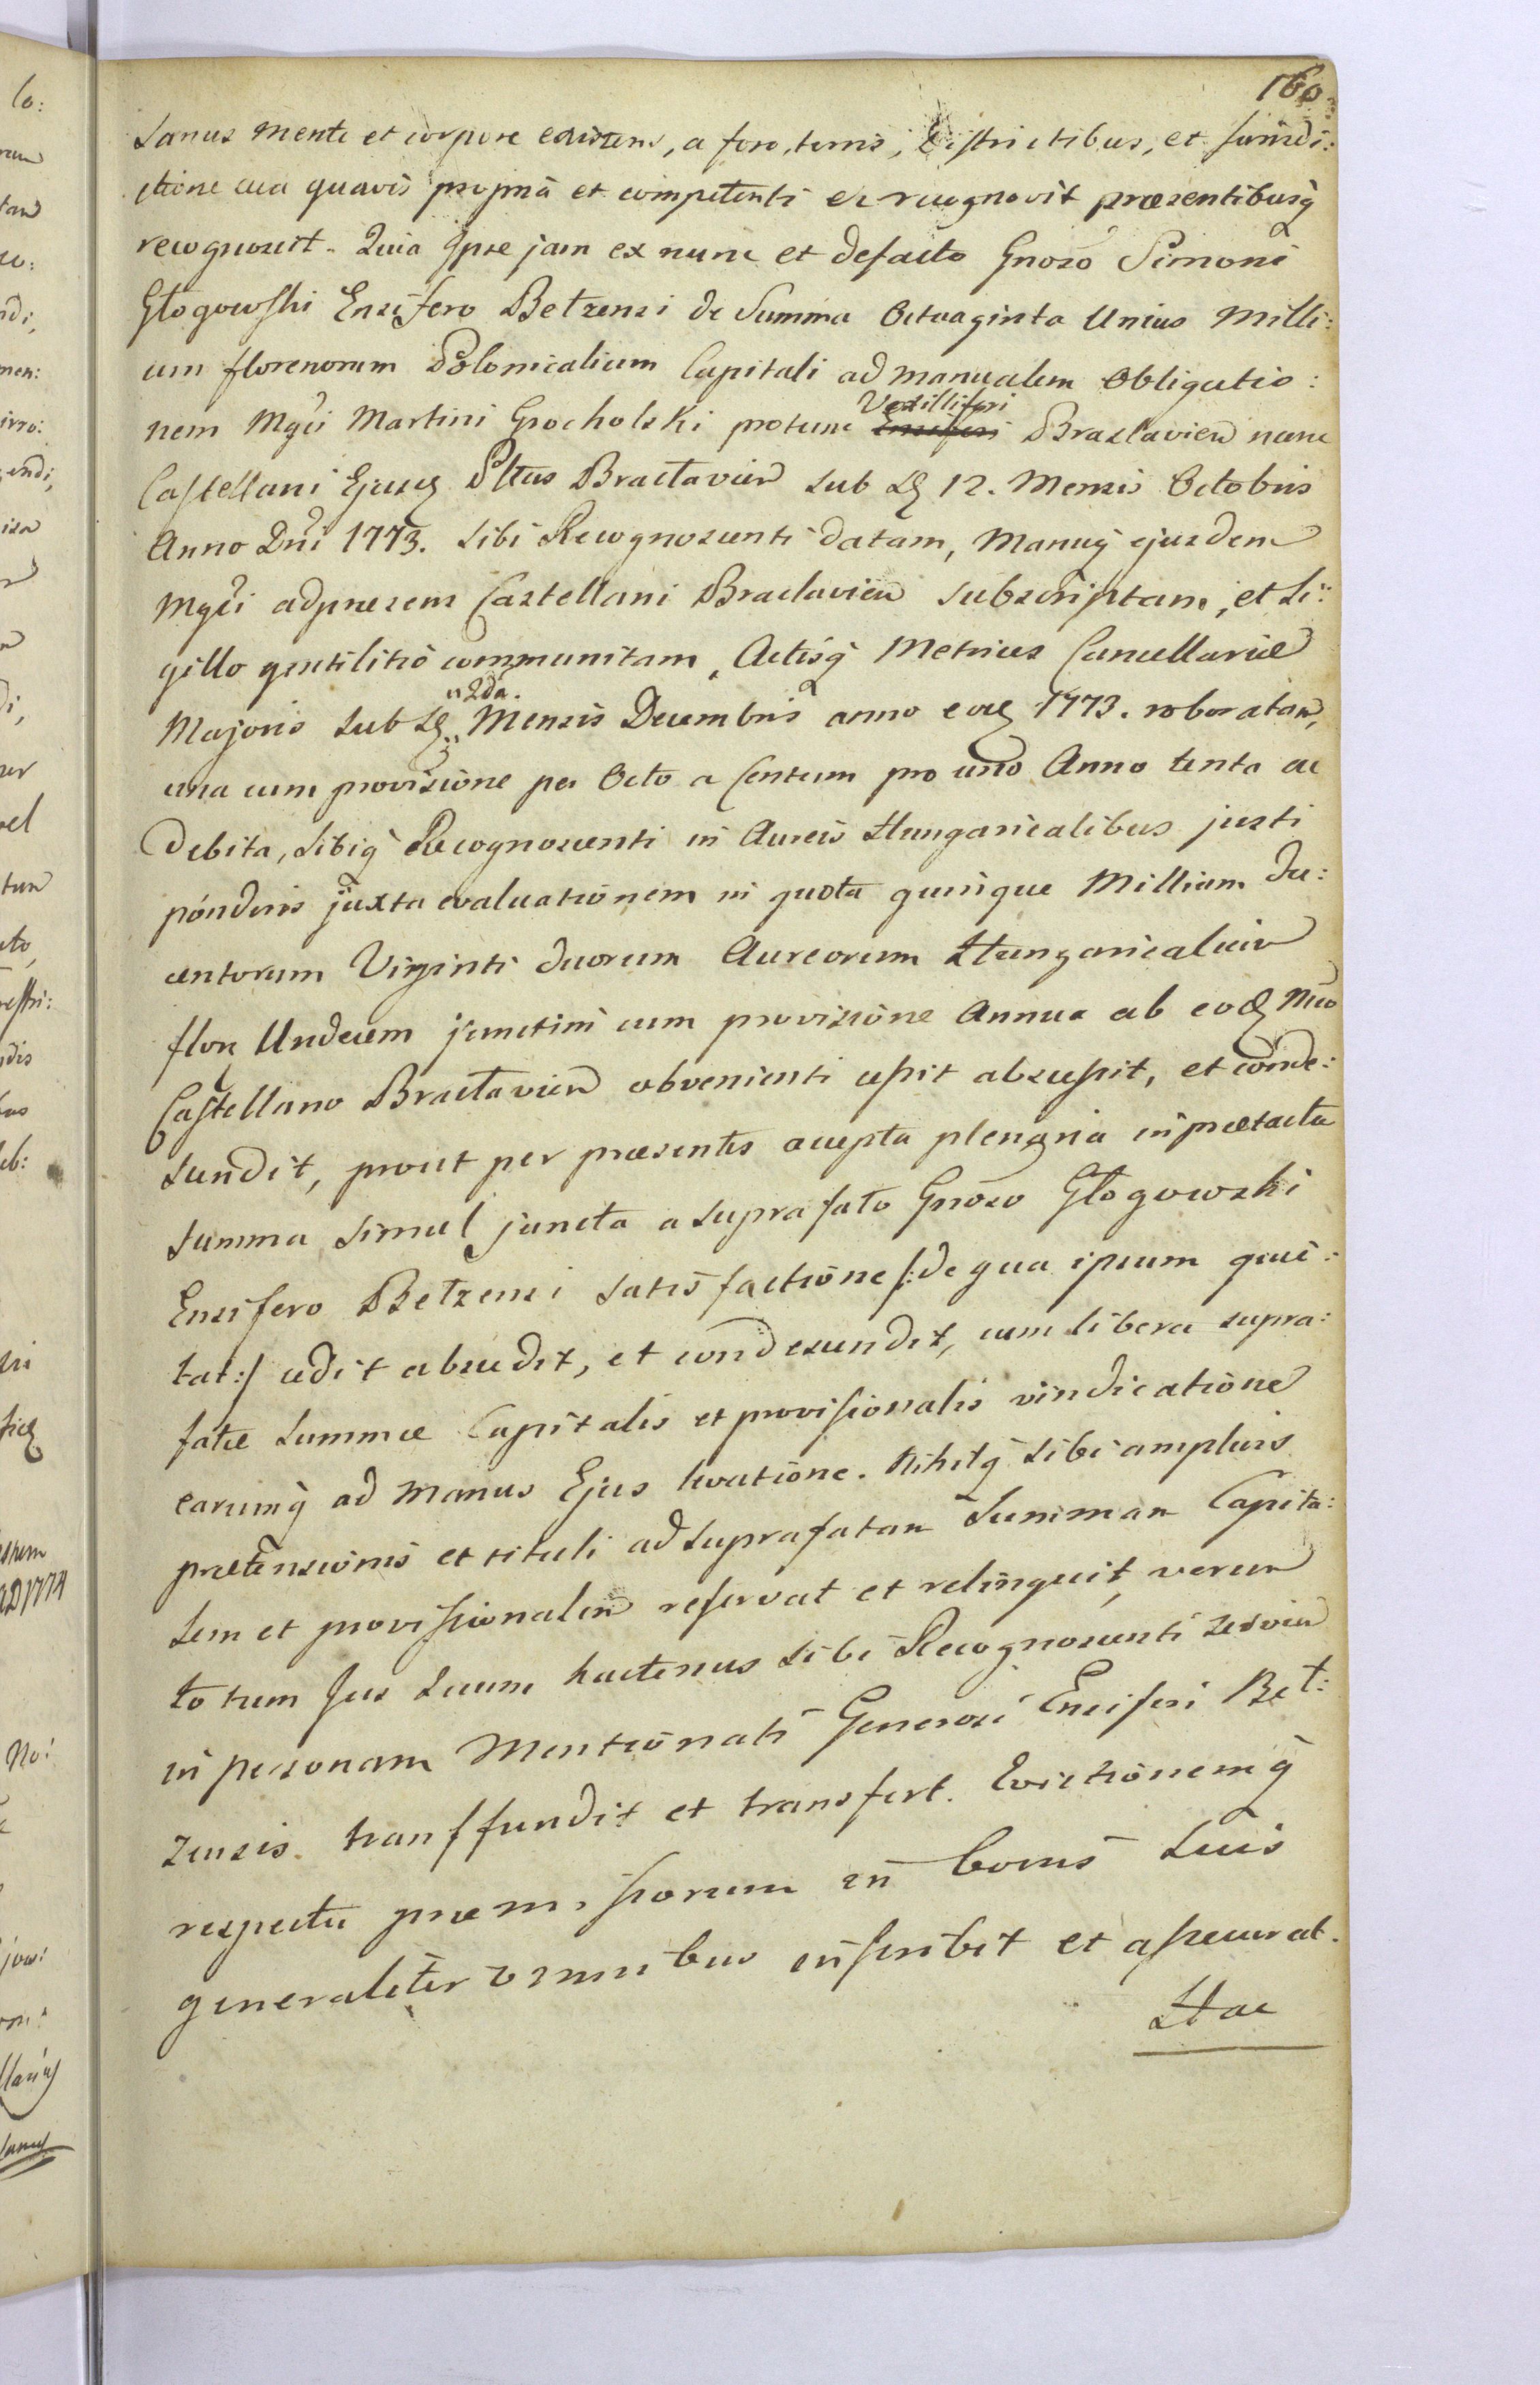 160.
Sanus mente et corpore existens, a foro, terris, districtibus, et jurisdi:
ctione sua quavis propria et competenti recognovit praesentibusq̃
recognoscit. Quia Ipse jam ex nunc et defacto Gnoso Simoni
Głogowski Ensifero Bełzensi de Summa Octuaginta Unius Milli:
um florenorum Polonicalium Capitali ad manualem Obligatio:
nem Mgci Martini Grocholski protunc Vexilliferi Braslavien nunc
Castellani Ejusq Pltus Bracłavien sub dq 12. Mensis Octobris
Anno Dni 1773. Sibi Recognoscenti datam, Manuq̃ ejusdem
Mgci adpraesens Castellani Braclavien subscriptam, et Si:
gillo gentilitio communitam, Actisq̃ Metrices Cancellariæ
Majoris sub dq „2da. Mensis Decembris anno eoq 1773. roboratam,
una cum provisione per Octo a Centum pro uno Anno tenta ac
debita, Sibiq̃ Recognoscenti in Aureis Hungaricalibus justi
ponderis juxta evaluationem in quota quinque Millium Du:
centorum Viginti duorum Aureorum Hungaricalium
flor Undecim junctim cum provisione Annua ab eoq Mco
Castellano Bracłavien obvenienti cessit abscessit, et conde:
scendit, prout per praesentes accepta plenaria in praetacta
summa simul juncta a suprafato Gnoso Głogowski
Ensifero Bełzensi satisfactione /:de qua ipsum quie:
tat:/ cedit abscedit, et condescendit, cum libera supra:
fatæ Summæ Capitalis et provisionalis vindicatione
earumq̃ ad manus Ejus levatione. Nihilq̃ sibi amplius
prætensionis et tituli ad suprafatam Summam Capita:
lem et provisionalem reservat et relinquit, verum
totum Jus suum hactenus sibi Recognoscenti servien
in personam Mentionati Generosi Ensiferi Beł:
zensis transfundit et transfert. Evictionemq̃
respectu præmissorum in bonis suis
generaliter omnibus inscribit et assecurat.
Hac